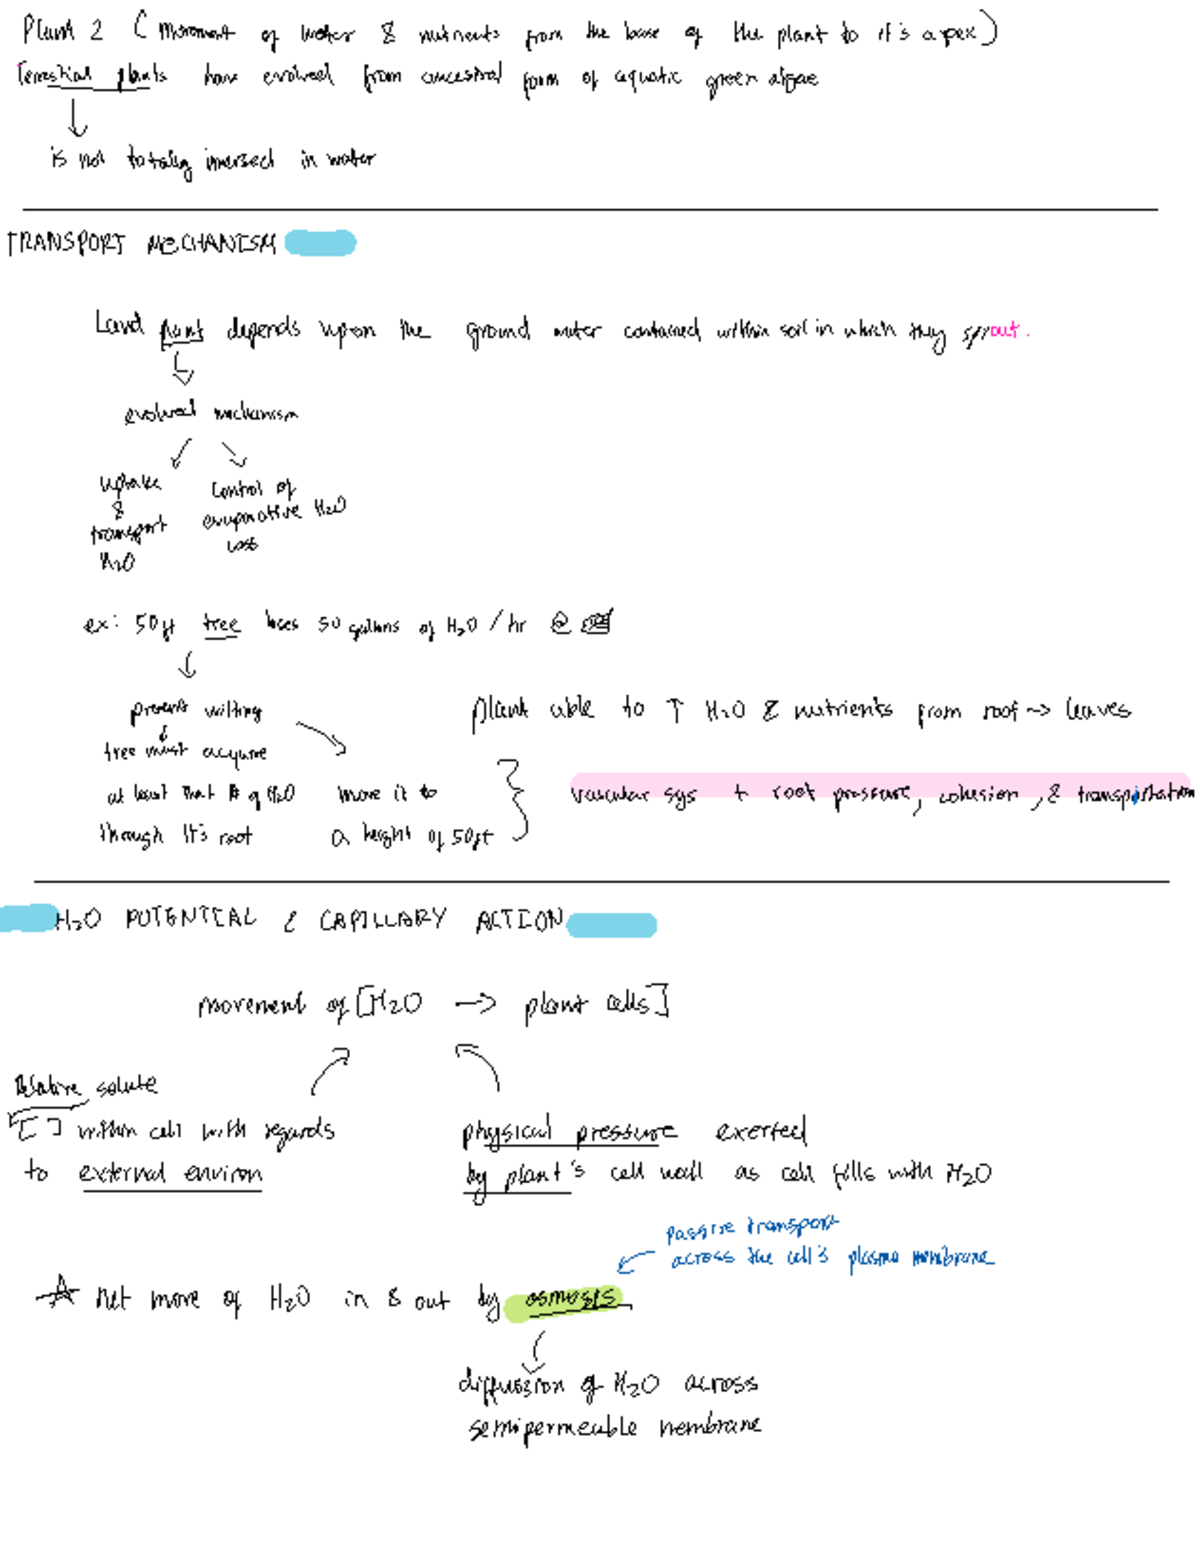 Plant 2 (Movement of water & nutrients from the base of the plant to it's apex)
Terrestial plants have evolved from ancestral form of aquatic green algae
is not totally imersed in water
TRANSPORT MECHANISM
Land plant depends upon the ground water contained within soil in which they sprout.
evolved mechanism
uptake
&
transport
H2O
Control of
evaporative H2O
loss
ex: 50ft tree loses 50 gallons of H2O / hr @
prevent wilting
tree must acquire
at least that # of H2O
through it's root
move it to
a height of 50ft
plant able to ↑ H2O & nutrients from root → leaves
vascular sys + root pressure, cohesion, & transpiration
H2O POTENTIAL & CAPILLARY ACTION
movement of [H2O → plant cells]
Relative solute
[ ] within cell with regards
to external environ
physical pressure exerted
by plant's cell wall as cell fills with H2O
passive transport
across the cell's plasma membrane
☆ net move of H2O in & out by osmosis
diffussion of H2O across
semipermeable membrane